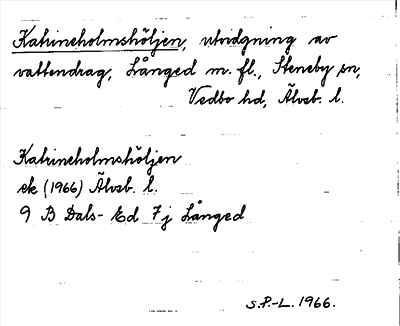 Katrineholmshöljen, utvidgning av
vattendrag, Långed m. fl., Steneby sn,
Vedbo hd, Älvsb. l.
Katrineholmshöljen
ek (1966) Älvsb. l.
9 B Dals-Ed 7j Långed
S.P.-L. 1966.